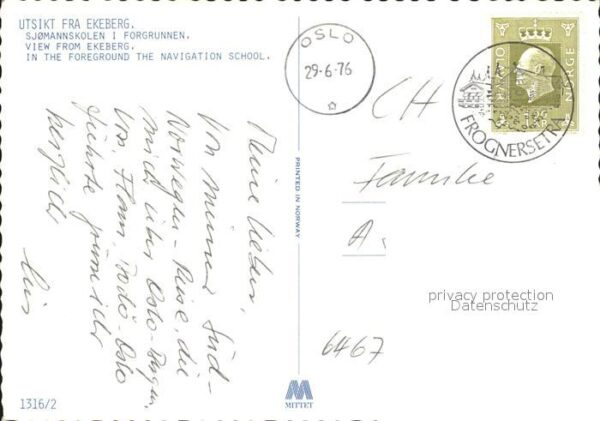 UTSIKT FRA EKEBERG.
SJØMANNSKOLEN I FORGRUNNEN.
VIEW FROM EKEBERG.
IN THE FOREGROUND THE NAVIGATION SCHOOL.
OSLO
29-6-76
FROGNERSETRA
NORGE
Meine Lieben,
Von meiner Süd-
Norwegen-Reise, die
mich über Oslo-Bergen,
Oslo
führte grüsse ich
herzlich
PRINTED IN NORWAY
CH
Familie
A.
6467
privacy protection
Datenschutz
1316/2
M
MITTET